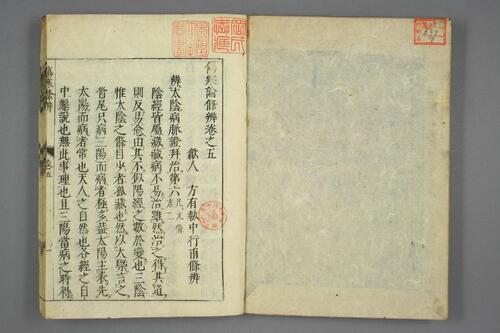 傷寒論條辨卷之五
歙人 方有執中行甫條辨
辨太陰病脈證并治第六 凡九條 方二
陰經皆屬藏藏病不易治雖然治之得其道
則反易愈由其不似陽經之數於變也三陰
惟太陰之條目少者孤藏也然以大槩言之
首尾只病三陽而病者極多葢太陽主表先
太陽而病者常也天人之自然也各經之自
中槩說也無此事理也且三陽當病之時得
傷寒條辨
卷五
一